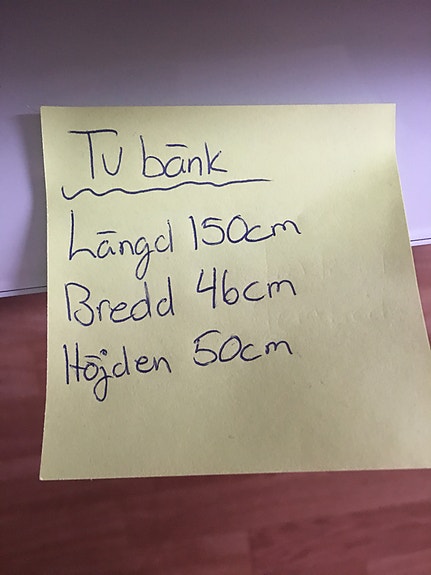 Tv bänk
Längd 150cm
Bredd 46cm
Höjden 50cm